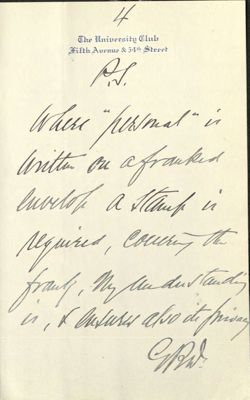 4
The University Club
Fifth Avenue & 54th Street
P.S.
Where "personal" is
written on a franked
envelop a stamp is
required, covering the
frank, my understanding
is, & ensures also its privacy